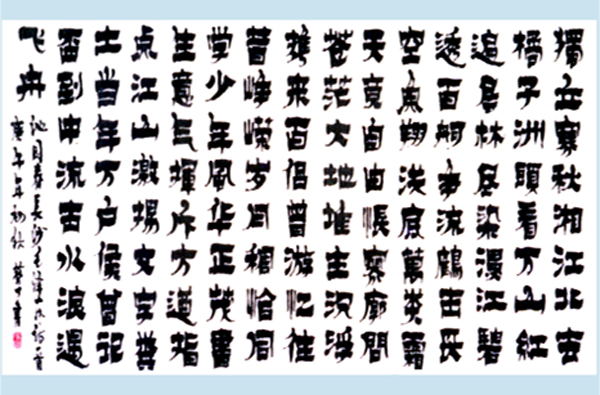 獨立寒秋湘江北去
橘子洲頭看万山紅
遍层林尽染漫江碧
透百舸争流鷹击长
空魚翔浅底萬类霜
天竟自由悵寥廓問
苍茫大地谁主沉浮
携来百侣曾游忆往
昔峥嵘岁月稠恰同
学少年風华正茂書
生意气揮斥方遒指
点江山激揚文字粪
土当年万户侯曾记
否到中流击水浪遏
飞舟
沁园春长沙毛泽东
庚午年初秋